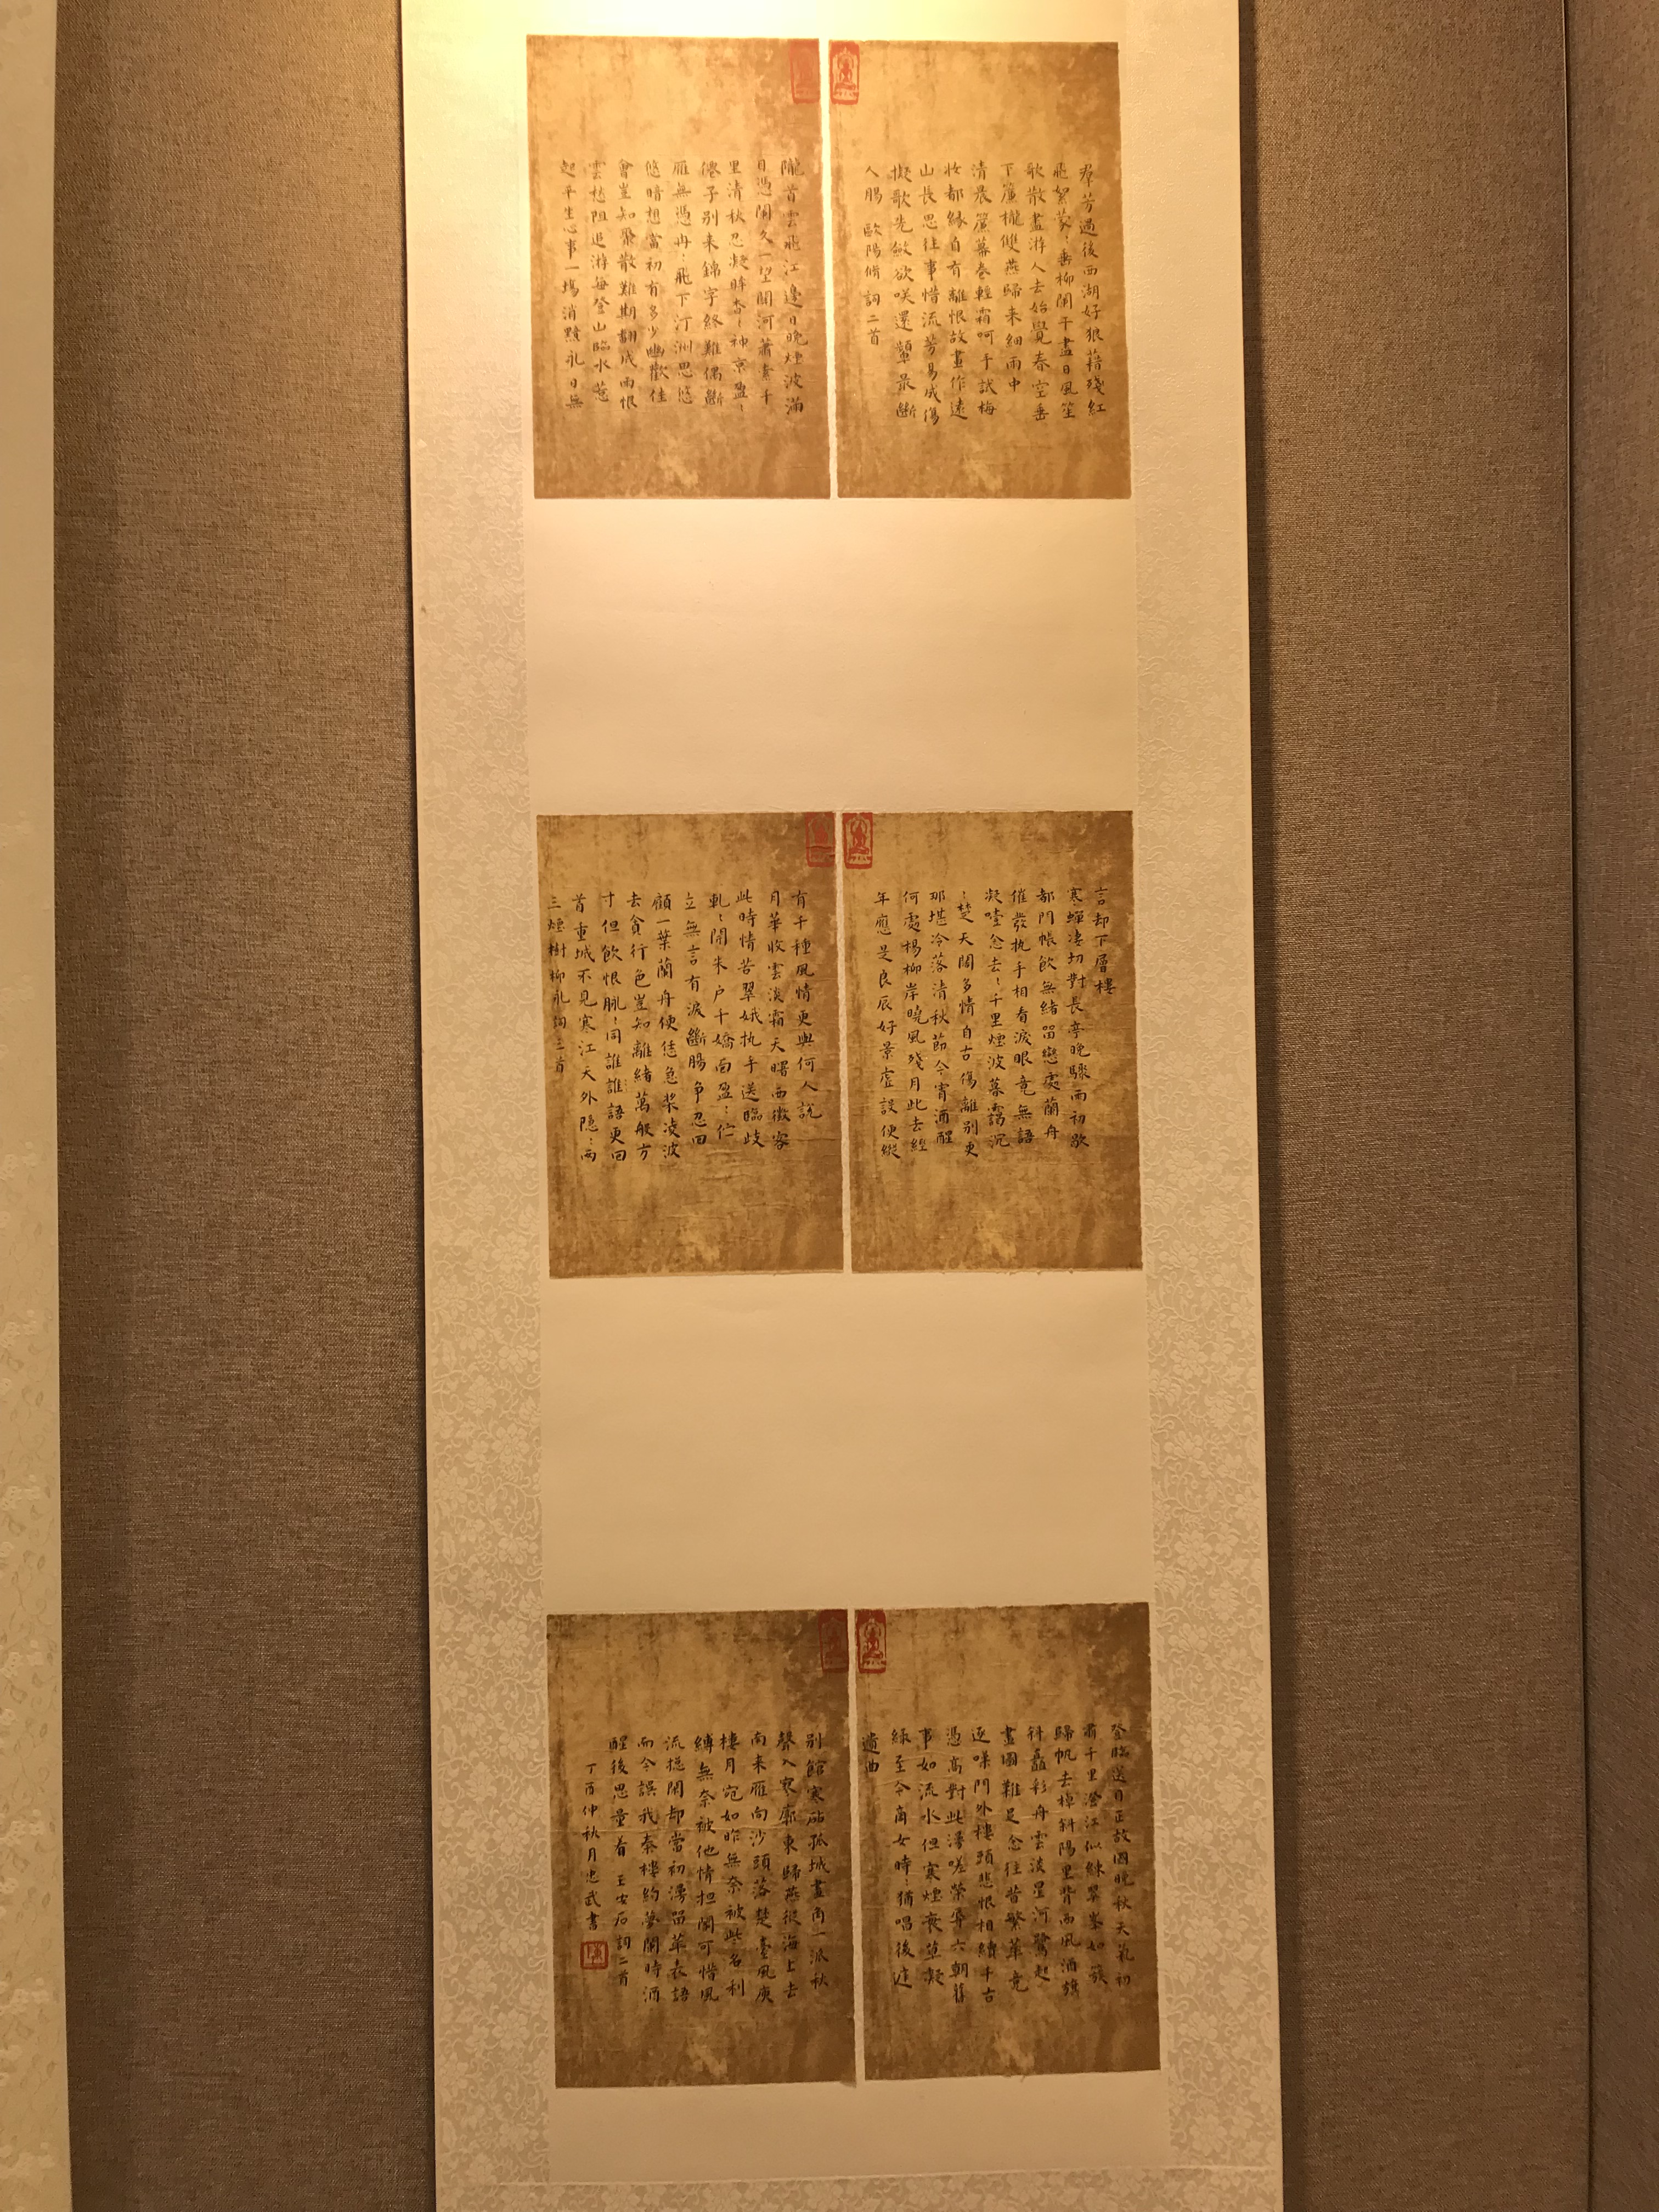 羣芳過後西湖好狼藉殘紅
飛絮蒙〻垂柳闌干盡日風笙
歌散盡游人去始覺春空垂
下簾櫳雙燕歸来細雨中
清晨簾幕卷輕霜呵手試梅
妝都緣自有離恨故畫作遠
山長思往事惜流芳易成傷
擬歌先斂欲咲還顰最斷
人腸 歐陽脩詞二首
隴首雲飛江邊日晚煙波滿
目憑闌久一望關河蕭索千
里清秋忍凝眸杳〻神京盈〻
僊子别来錦字終難偶斷
雁無憑冉〻飛下汀洲思悠
悠暗想當初有多少幽歡佳
會豈知聚散難期翻成雨恨
雲愁阻追游每登山臨水惹
起平生心事一場消黯永日無
言却下層樓
寒蟬淒切對長亭晚驟雨初歇
都門帳飲無緒留戀處蘭舟
催發执手相看淚眼竟無語
凝噎念去〻千里煙波暮靄沉
〻楚天闊多情自古傷離别更
那堪冷落清秋節今宵酒醒
何處楊柳岸曉風殘月此去經
年應是良辰好景虛設便縱
有千種風情更與何人說
月華收雲淡霜天曙西征客
此時情苦翠娥执手送臨歧
軋〻開朱户千嬌面盈〻佇
立無言有淚斷腸争忍回
顧一葉蘭舟便恁急桨凌波
去貪行色豈知離緒萬般方
寸但飲恨脈〻同誰語更回
首重城不見寒江天外隐〻兩
三煙樹柳永詞三首
登臨送目正故國晚秋天氣初
肅千里澄江似練翠峯如簇
歸帆去棹斜陽里背西風酒旗
斜矗彩舟雲淡星河鷺起
畫圖難足念往昔繁華竞
逐嘆門外樓頭悲恨相續千古
憑高對此漫嗟榮辱六朝舊
事如流水但寒煙衰草凝
綠至今商女時〻猶唱後庭
遺曲
别館寒砧孤城畫角一派秋
聲入寥廓東歸燕從海上去
南来雁向沙頭落楚臺風庾
樓月宛如昨無奈被些名利
縛無奈被他情担閣可惜風
流捴閑却當初漫留華表語
而今誤我秦樓約夢闌時酒
醒後思量着 王安石詞二首
丁酉仲秋月忠武書